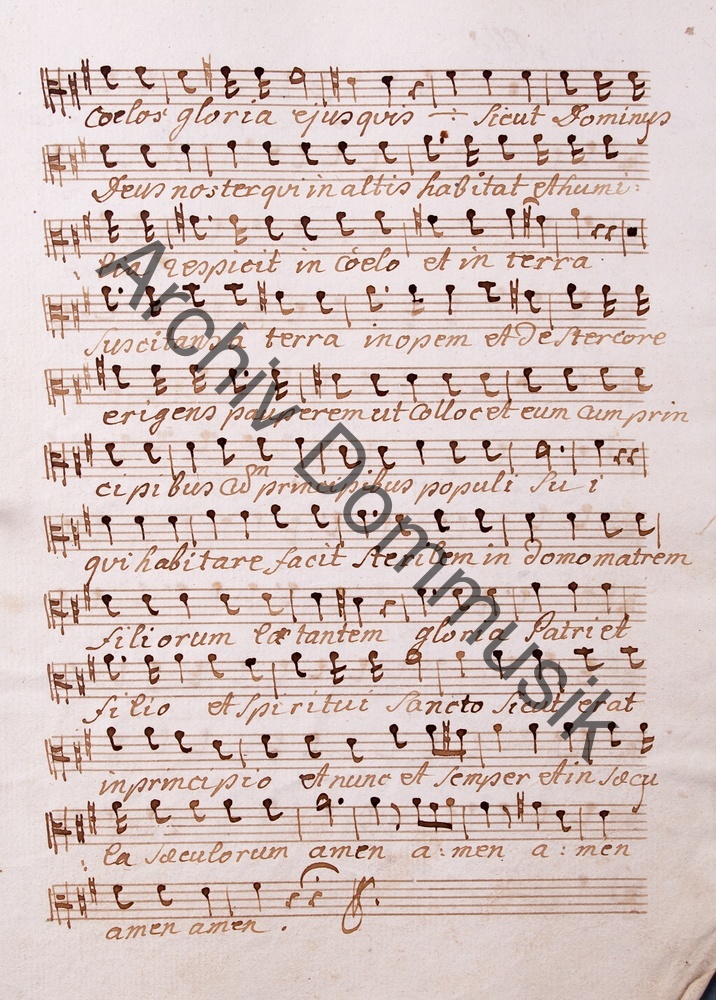 coelos gloria ejus quis ÷ sicut Dominus
Deus noster qui in altis habitat et humi:
lia respicit in Coelo et in terra
suscitans a terra inopem et de stercore
erigens pauperem ut Collocet eum cum prin
cipibus cum principibus populi su i
qui habitare facit sterilem in domo matrem
filiorum lætantem gloria Patri et
filio et spiritui sancto sicut erat
in principio et nunc et semper et in sæcu
la sæculorum amen a:men a:men
amen amen.
Archiv Dommusik